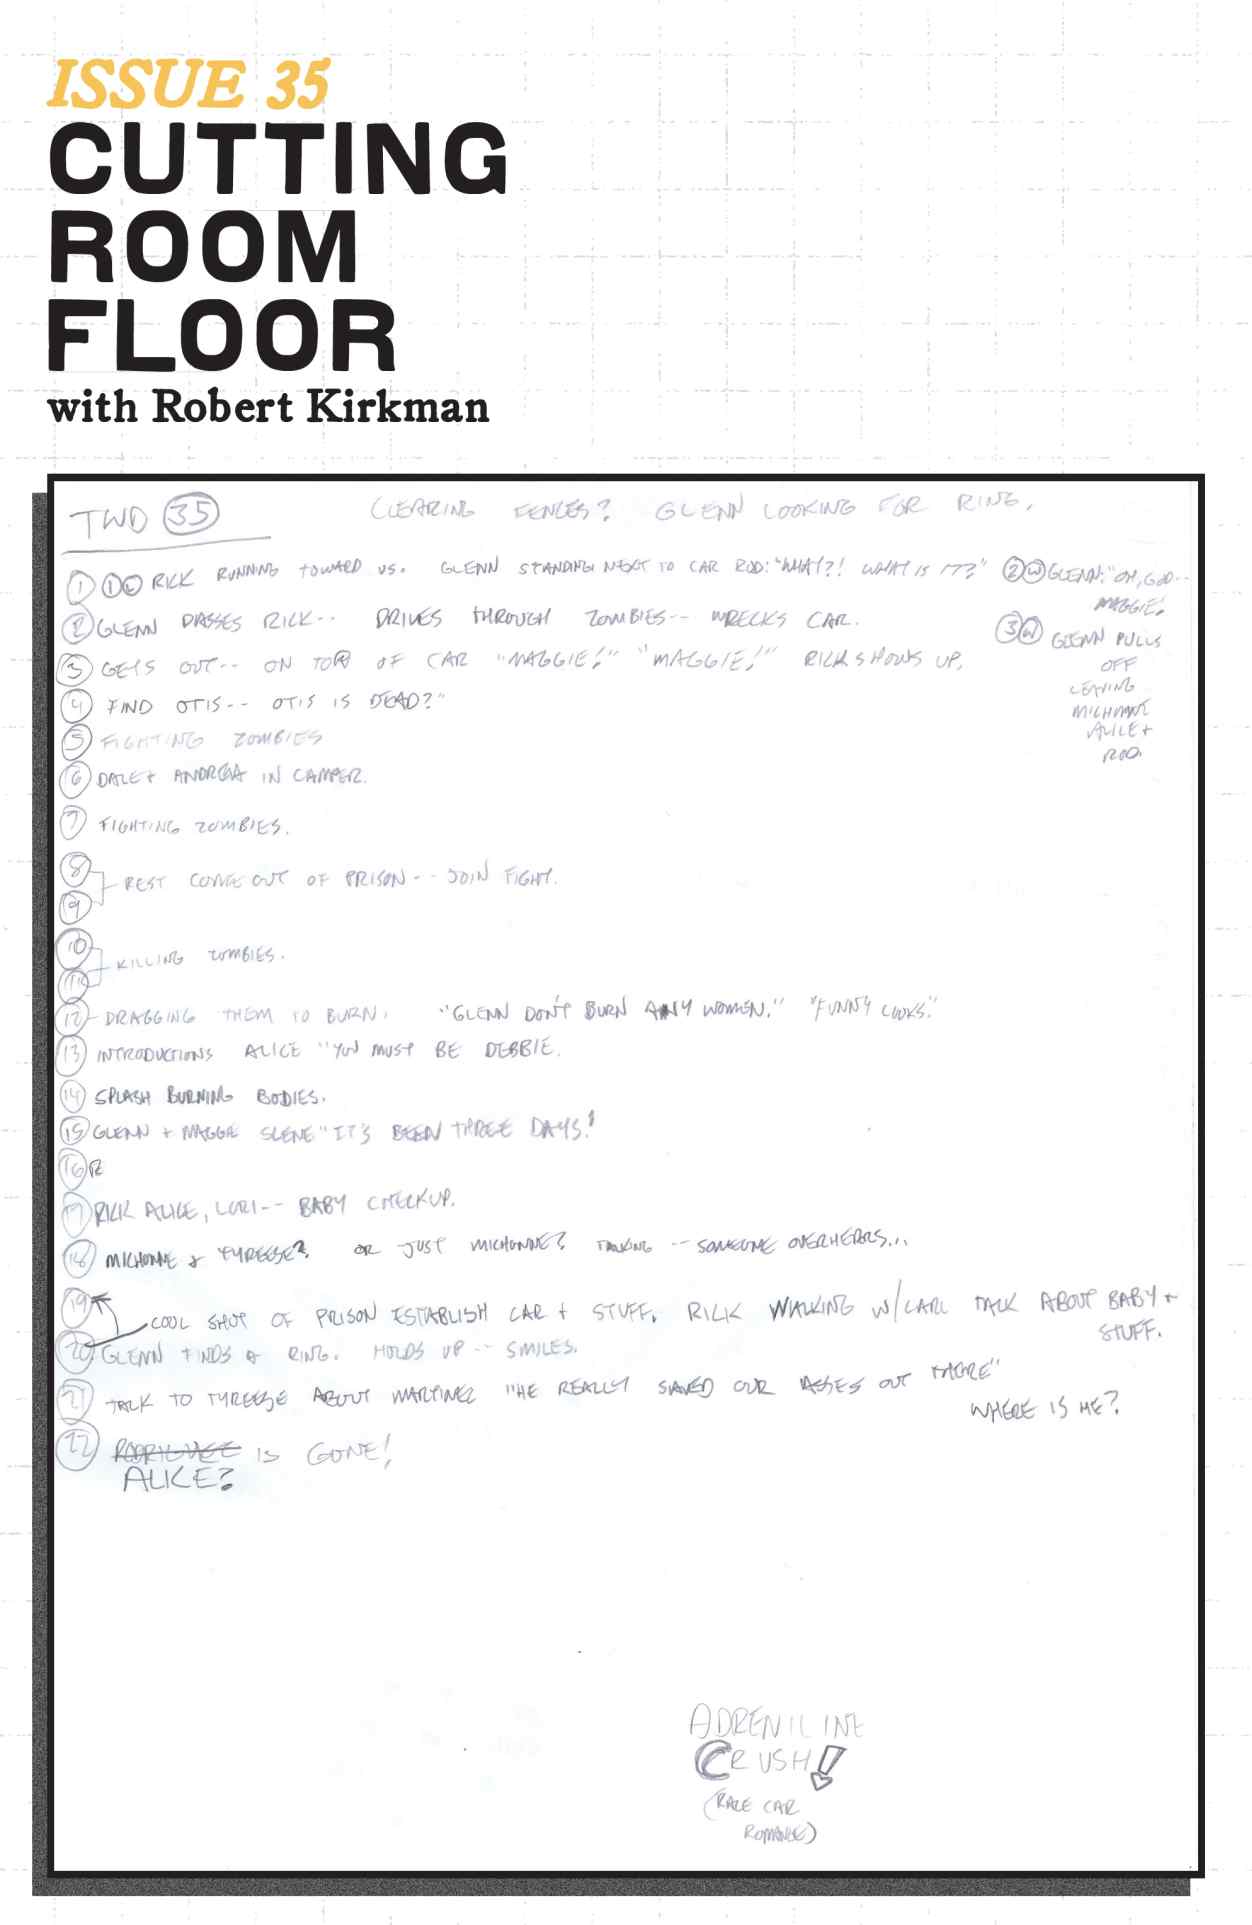 ISSUE 35
CUTTING
ROOM
FLOOR
with Robert Kirkman
TWD 35 CLEARING FENCES? GLENN LOOKING FOR RING.
1 1 RICK RUNNING TOWARD US. GLENN STANDING NEXT TO CAR ROD: "WHAT?! WHAT IS IT?" 2 GLENN: "OH, GOD--
MAGGIE!
2 GLENN PASSES RICK-- DRIVES THROUGH ZOMBIES-- WRECKS CAR.
3 GLENN PULLS
OFF
LEAVING
MICHONNE
ALICE +
ROD.
3 GETS OUT-- ON TOP OF CAR "MAGGIE!" "MAGGIE!" RICK SHOWS UP.
4 FIND OTIS-- OTIS IS DEAD?"
5 FIGHTING ZOMBIES
6 DALE + ANDREA IN CAMPER.
7 FIGHTING ZOMBIES.
8
9 REST COME OUT OF PRISON-- JOIN FIGHT.
10
11 KILLING ZOMBIES.
12 DRAGGING THEM TO BURN. "GLENN DON'T BURN ANY WOMEN." "FUNNY LOOKS."
13 INTRODUCTIONS ALICE "YOU MUST BE DEBBIE.
14 SPLASH BURNING BODIES.
15 GLENN + MAGGIE SCENE "IT'S BEEN THREE DAYS!
16 R
17 RICK ALICE, LORI-- BABY CHECKUP.
18 MICHONNE & TYREESE? OR JUST MICHONNE? TALKING -- SOMEONE OVERHEARS...
19 COOL SHOT OF PRISON ESTABLISH CAR + STUFF. RICK WALKING W/CARL TALK ABOUT BABY +
STUFF.
20. GLENN FINDS A RING. HOLDS UP -- SMILES.
21 TALK TO TYREESE ABOUT MARTINEZ "HE REALLY SAVED OUR ASSES OUT THERE"
WHERE IS HE?
22 IS GONE!
ALICE?
ADRENILINE
CRUSH!
(RACE CAR
ROMANCE)